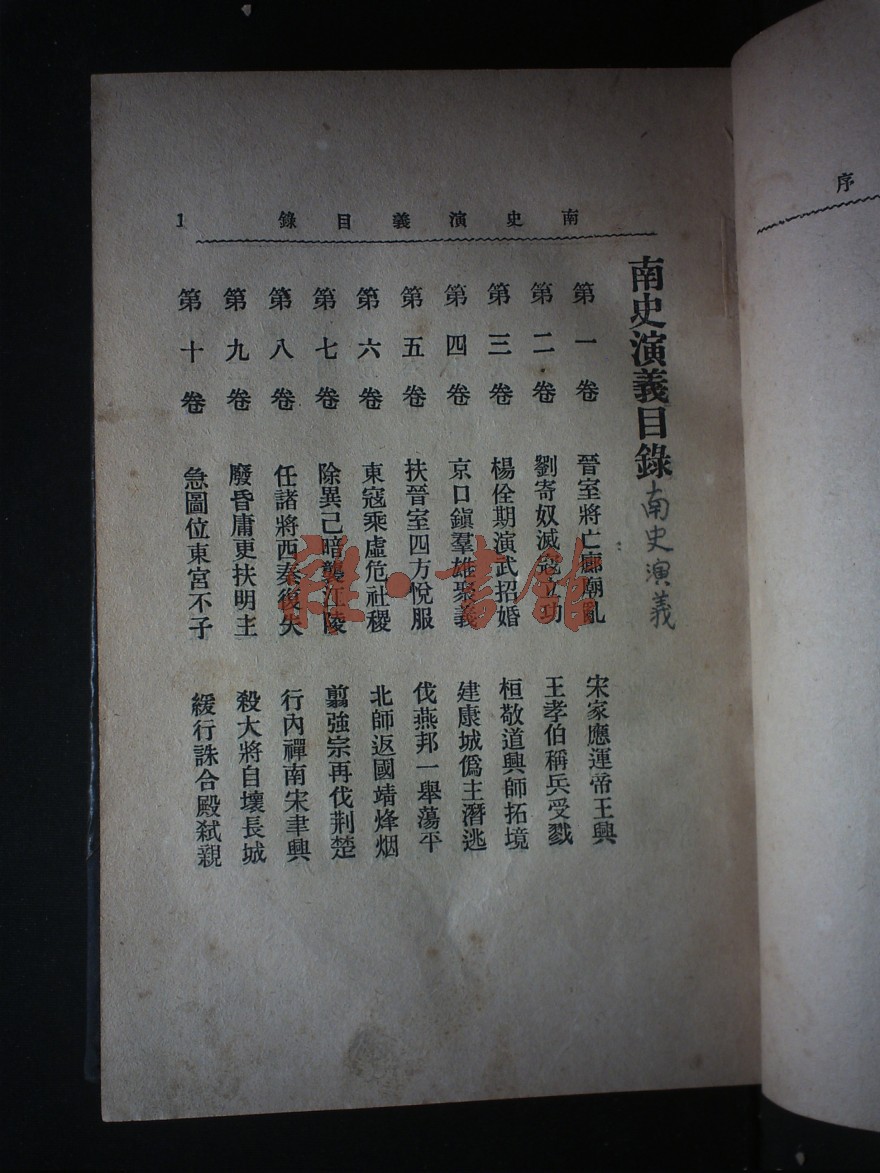 南史演義目錄
1
南史演義目錄
南史演義
第一卷 晉室將亡廊廟亂 宋家應運帝王興
第二卷 劉寄奴滅寇立功 王孝伯稱兵受戮
第三卷 楊佺期演武招婚 桓敬道興師拓境
第四卷 京口鎮羣雄聚義 建康城僞主潛逃
第五卷 扶晉室四方悅服 伐燕邦一舉蕩平
第六卷 東寇乘虛危社稷 北師返國靖烽烟
第七卷 除異己暗襲江陵 翦強宗再伐荆楚
第八卷 任諸將西秦復失 行內禪南宋聿興
第九卷 廢昏庸更扶明主 殺大將自壞長城
第十卷 急圖位東宮不子 緩行誅合殿弒親
雜·書館
序